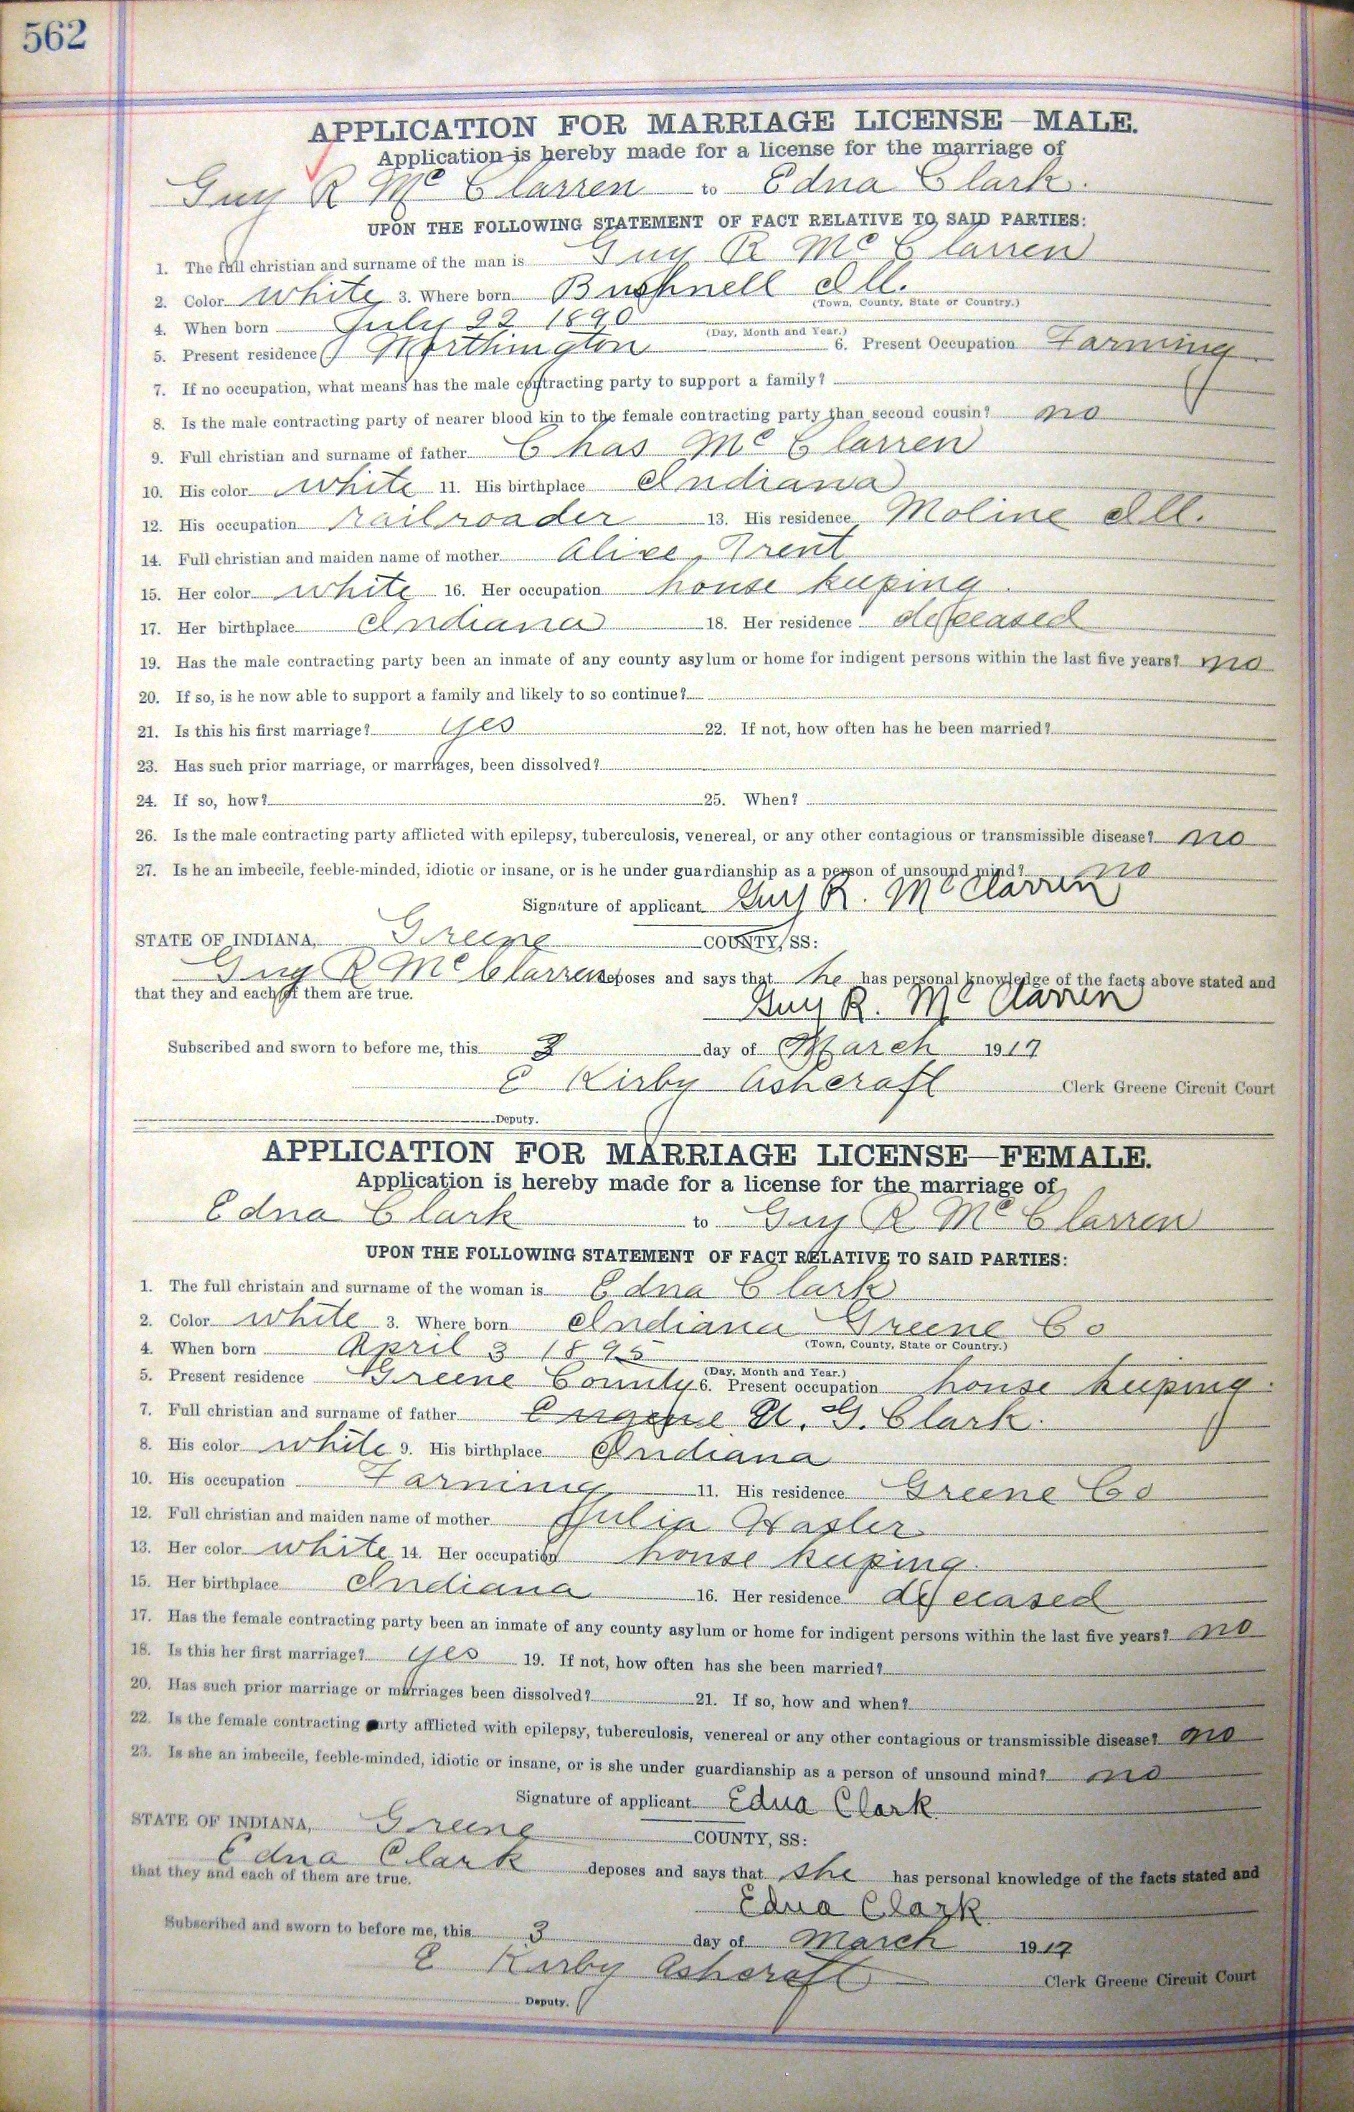 562
APPLICATION FOR MARRIAGE LICENSE—MALE.
Application is hereby made for a license for the marriage of
Guy R Mc Clarren to Edna Clark.
UPON THE FOLLOWING STATEMENT OF FACT RELATIVE TO SAID PARTIES:
1. The full christian and surname of the man is Guy R Mc Clarren
2. Color white 3. Where born Bushnell Ill.
(Town, County, State or Country.)
4. When born July 22 1890
(Day, Month and Year.)
5. Present residence Worthington 6. Present Occupation Farming
7. If no occupation, what means has the male contracting party to support a family?
8. Is the male contracting party of nearer blood kin to the female contracting party than second cousin? no
9. Full christian and surname of father Chas Mc Clarren
10. His color white 11. His birthplace Indiana
12. His occupation railroader 13. His residence Moline Ill.
14. Full christian and maiden name of mother Alice Trent
15. Her color white 16. Her occupation house keeping.
17. Her birthplace Indiana 18. Her residence deceased
19. Has the male contracting party been an inmate of any county asylum or home for indigent persons within the last five years? no
20. If so, is he now able to support a family and likely to so continue?
21. Is this his first marriage? yes 22. If not, how often has he been married?
23. Has such prior marriage, or marriages, been dissolved?
24. If so, how? 25. When?
26. Is the male contracting party afflicted with epilepsy, tuberculosis, venereal, or any other contagious or transmissible disease? no
27. Is he an imbecile, feeble-minded, idiotic or insane, or is he under guardianship as a person of unsound mind? no
Signature of applicant Guy R. McClarren
STATE OF INDIANA, Greene COUNTY, SS:
Guy R Mc Clarren deposes and says that he has personal knowledge of the facts above stated and
that they and each of them are true.
Guy R. Mc Clarren
Subscribed and sworn to before me, this 3 day of March 1917
E Kirby Ashcraft Clerk Greene Circuit Court
Deputy.
APPLICATION FOR MARRIAGE LICENSE—FEMALE.
Application is hereby made for a license for the marriage of
Edna Clark to Guy R Mc Clarren
UPON THE FOLLOWING STATEMENT OF FACT RELATIVE TO SAID PARTIES:
1. The full christain and surname of the woman is Edna Clark
2. Color white 3. Where born Indiana Greene Co
(Town, County, State or Country.)
4. When born April 3 1895
(Day, Month and Year.)
5. Present residence Greene County 6. Present occupation house keeping.
7. Full christian and surname of father Eugene U. G. Clark.
8. His color white 9. His birthplace Indiana
10. His occupation Farming 11. His residence Greene Co
12. Full christian and maiden name of mother Julia Hasler
13. Her color white 14. Her occupation house keeping.
15. Her birthplace Indiana 16. Her residence deceased
17. Has the female contracting party been an inmate of any county asylum or home for indigent persons within the last five years? no
18. Is this her first marriage? yes 19. If not, how often has she been married?
20. Has such prior marriage or marriages been dissolved? 21. If so, how and when?
22. Is the female contracting party afflicted with epilepsy, tuberculosis, venereal or any other contagious or transmissible disease? no
23. Is she an imbecile, feeble-minded, idiotic or insane, or is she under guardianship as a person of unsound mind? no
Signature of applicant Edna Clark
STATE OF INDIANA, Greene COUNTY, SS:
Edna Clark deposes and says that she has personal knowledge of the facts stated and
that they and each of them are true.
Edna Clark
Subscribed and sworn to before me, this 3 day of March 1917
E Kirby Ashcraft Clerk Greene Circuit Court
Deputy.